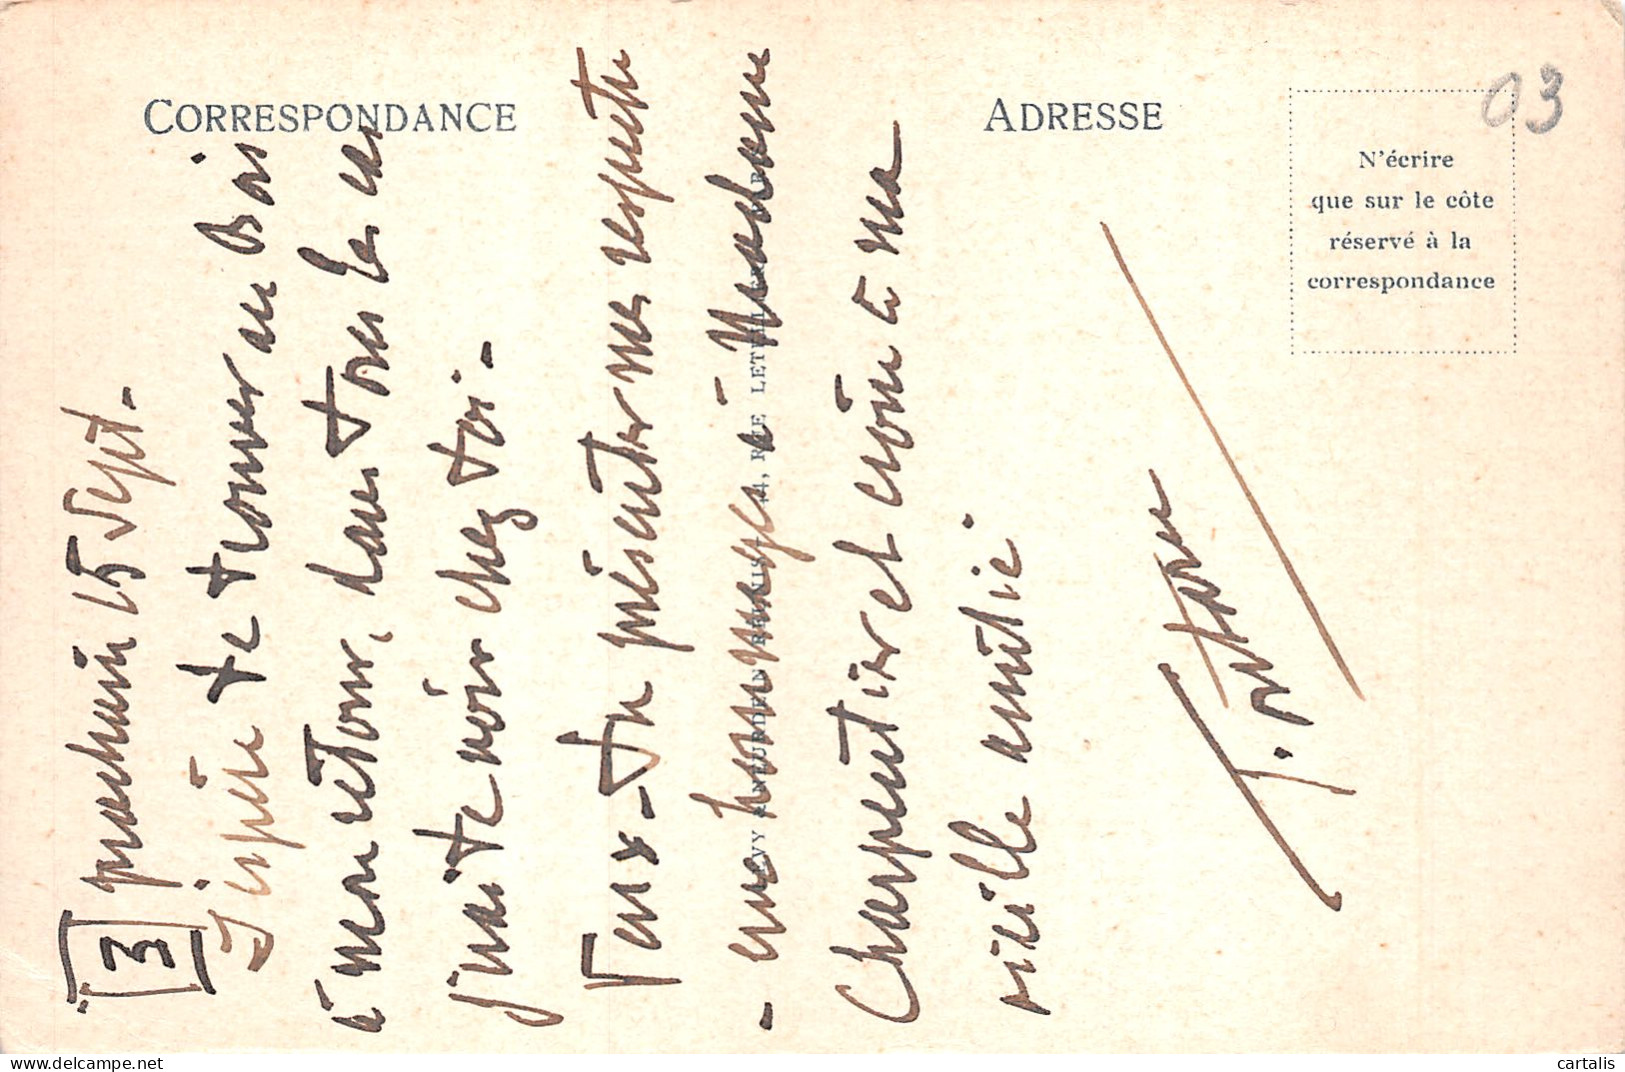 CORRESPONDANCE
ADRESSE
N'écrire
que sur le côte
réservé à la
correspondance
03
3
prochain 15 Sept.-
J'espère te trouver au Bois
à mon retour, dans tous les cas
j'irai te voir chez toi.-
Veux-tu présenter mes respectu
- eux hommages à Madame
Charpentier et crois à ma
vieille amitié.
LEVY ET NEURDEIN RÉUNIS, 44, RUE LETELLIER
cartalis